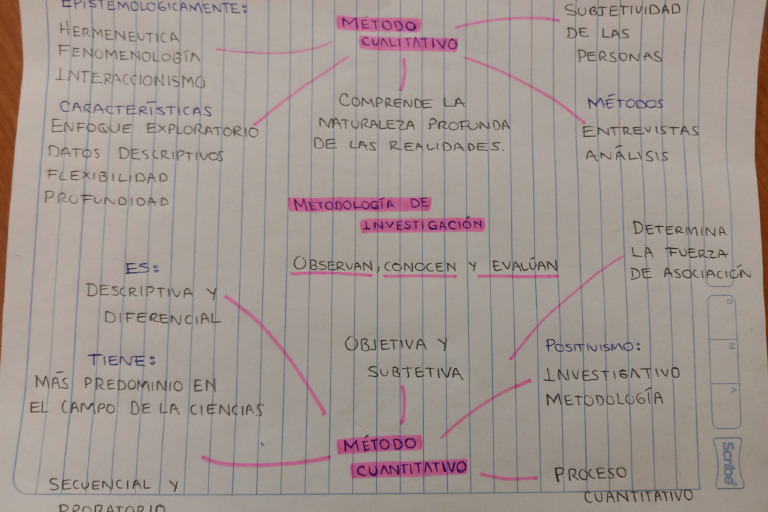 EPISTEMOLOGICAMENTE:
HERMENEUTICA
FENOMENOLOGÍA
INTERACCIONISMO
MÉTODO
CUALITATIVO
SUBTETIVIDAD
DE LAS
PERSONAS
CARACTERÍSTICAS
ENFOQUE EXPLORATORIO
DATOS DESCRIPTIVOS
FLEXIBILIDAD
PROFUNDIDAD
COMPRENDE LA
NATURALEZA PROFUNDA
DE LAS REALIDADES.
MÉTODOS
ENTREVISTAS
ANÁLISIS
METODOLOGÍA DE
INVESTIGACIÓN
OBSERVAN, CONOCEN Y EVALÚAN
DETERMINA
LA FUERZA
DE ASOCIACIÓN
ES:
DESCRIPTIVA Y
DIFERENCIAL
OBJETIVA Y
SUBTETIVA
POSITIVISMO:
INVESTIGATIVO
METODOLOGÍA
TIENE:
MÁS PREDOMINIO EN
EL CAMPO DE LA CIENCIAS
MÉTODO
CUANTITATIVO
SECUENCIAL Y
PROBATORIO
PROCESO
CUANTITATIVO
D
M
A
Scribe